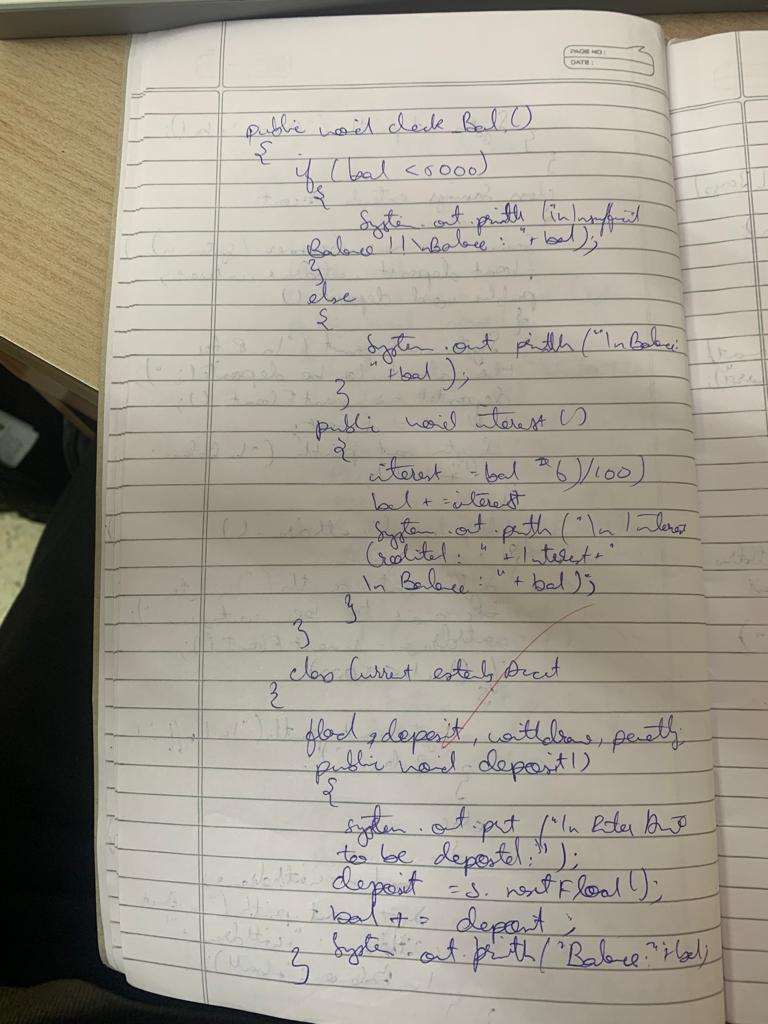 PAGE NO :
DATE :
public void check_Bal ()
{
if (bal < 5000)
{
System.out.println (\n Insufficient
Balance !! \nBalance : "+ bal);
}
else
{
System.out println ("\n Balance:
" +bal );
}
public void interest ()
{
interest = bal * 6)/100)
bal + = interest
System.out.println ("\n Interest
Credited : " + Interest + "
\n Balance : " + bal );
}
}
class Current extends Account
{
float , deposit, withdraw, penalty
public void deposit()
{
System.out.print ("\n Enter Amt
to be deposited : ");
deposit = s. nextFloat ();
bal + = deposit ;
System.out.println ("Balance:"+bal)
}